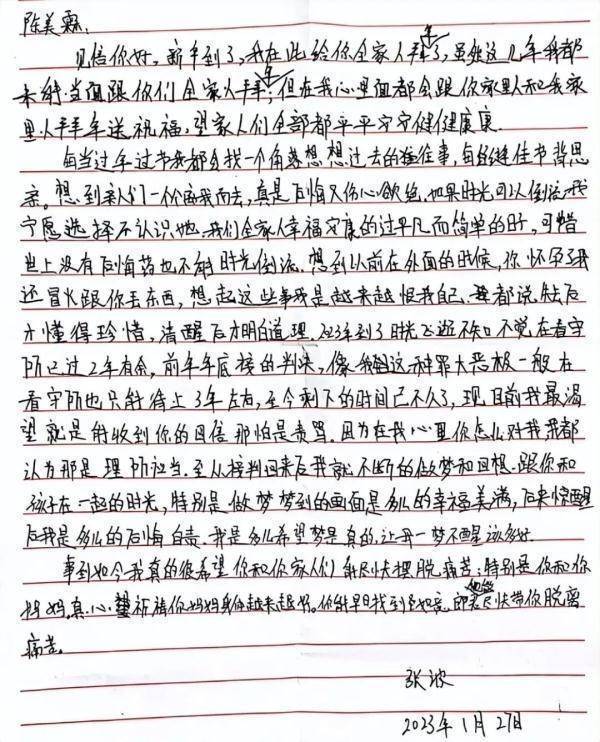 陈美霖:
见信你好,新年到了,我在此给你全家人拜年了,虽然这几年我都
未能当面跟你们全家人拜年,但在我心里面都会跟你家里人和我家
里人拜年送祝福,望家人们全部都平平安安健健康康.
每当过年过节我都会找一个角落想想过去的往事,每逢佳节倍思
亲。想到亲人们一个个离我而去,真是后悔又伤心欲绝,如果时光可以倒流我
宁愿选择不认识她.我们全家人幸福安康的过平凡而简单的日子,可惜
世上没有后悔药也不能时光倒流.想到以前在外面的时候,你怀孕了我
还冒火跟你丢东西,想起这些事我是越来越恨我自己.都说失去后
才懂得珍惜,清醒后才明白道理.2023年到了时光飞逝不知不觉在看守
所已过2年有余,前年年底接的判决,像我们这种罪大恶极一般在
看守所也只能待上3年左右,至今剩下的时间已不久了,现目前我最渴
望就是能收到你的回信那怕是责骂.因为在我心里你怎么对我我都
认为那是理所应当.至从接判回来后我就不断的做梦和回想.跟你和
孩子在一起的时光,特别是做梦梦到的画面是多么的幸福美满,后来惊醒
后我是多么的后悔自责.我是多么希望梦是真的,让我一梦不醒该多好.
事到如今我真的很希望你和你家人们能尽快摆脱痛苦:特别是你和你
妈妈.真心祈祷你妈妈身体越来越好.你能早日找到,尽快带你脱离
痛苦。
张波
2023年1月27日